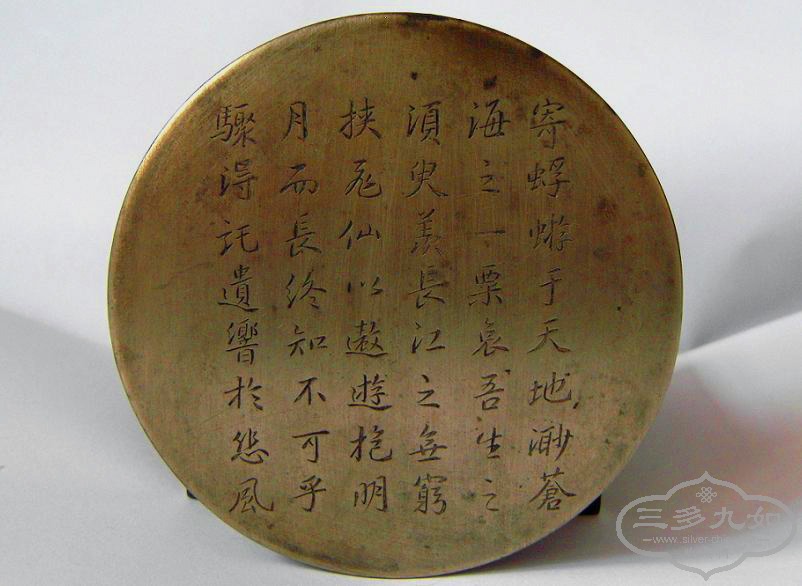 寄蜉蝣于天地渺蒼
海之一粟哀吾生之
須臾羨長江之無窮
挾飛仙以遨遊抱明
月而長終知不可乎
驟得託遺響於悲風
三多九如